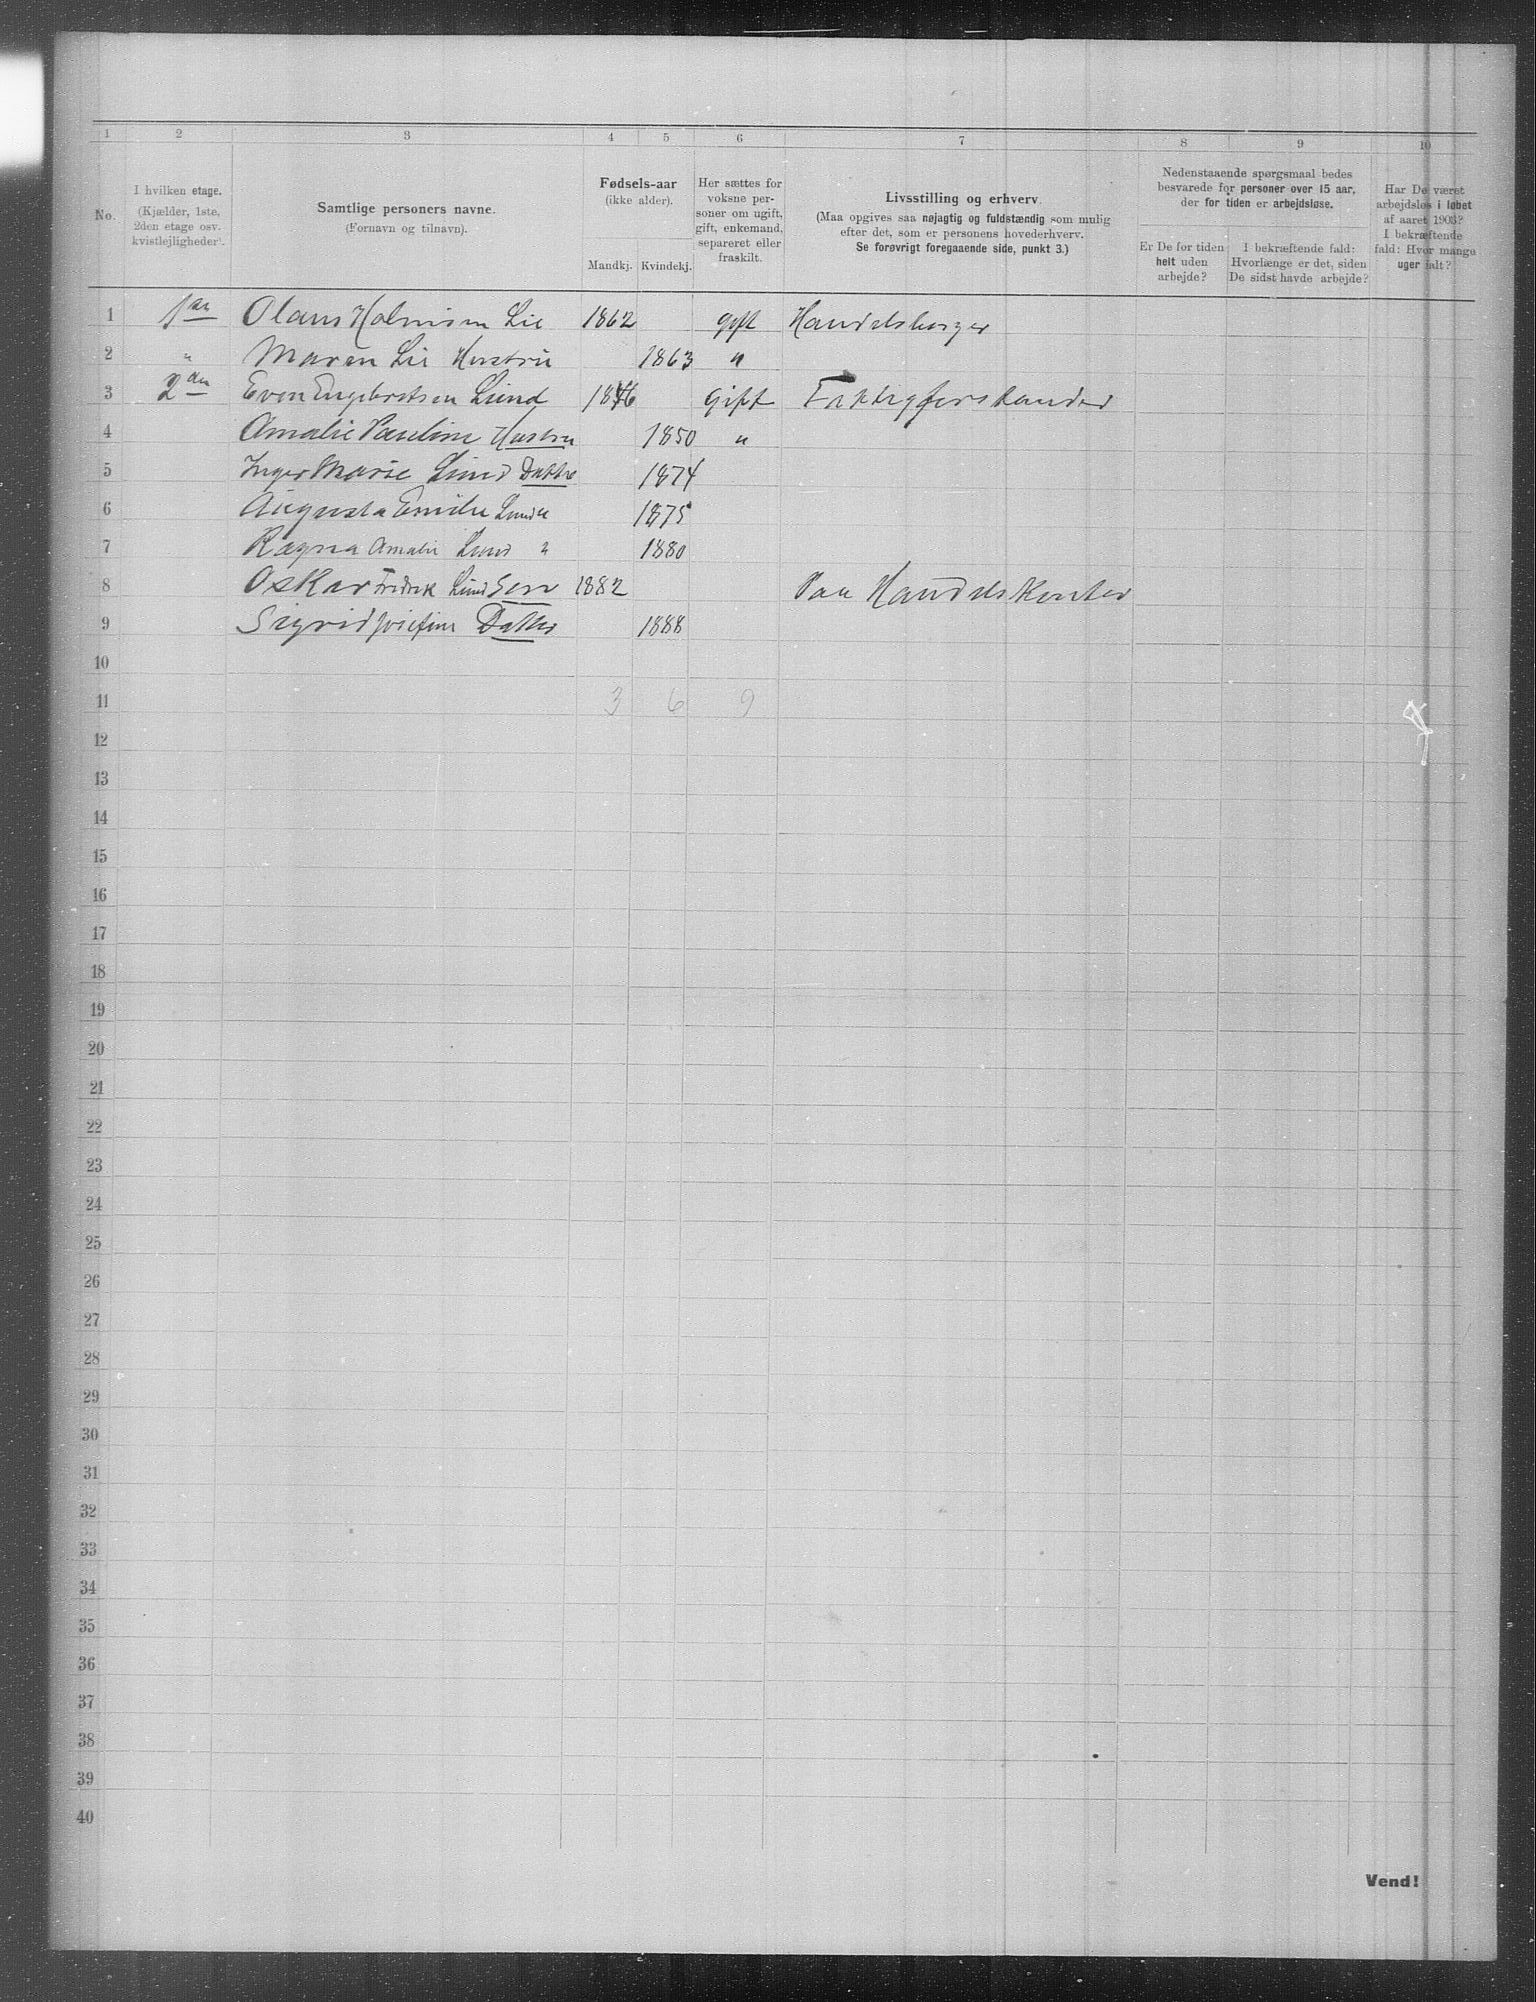 1 2 3 4 5 6 7 8 9 10
No.
I hvilken etage.
(Kjælder, 1ste,
2den etage osv.
kvistlejligheder).
Samtlige personers navne.
(Fornavn og tilnavn).
Fødsels-aar
(ikke alder).
Mandkj. Kvindekj.
Her sættes for
voksne per-
soner om ugift,
gift, enkemand,
separeret eller
fraskilt.
Livsstilling og erhverv.
(Maa opgives saa nøjagtig og fuldstændig som mulig
efter det, som er personens hovederhverv.
Se forøvrigt foregaaende side, punkt 3.)
Nedenstaaende spørgsmaal bedes
besvarede for personer over 15 aar,
der for tiden er arbejdsløse.
Er De for tiden
helt uden
arbejde?
I bekræftende fald:
Hvorlænge er det, siden
De sidst havde arbejde?
Har De været
arbejdsløs i løbet
af aaret 1903?
I bekræftende
fald: Hvor mange
uger ialt?
1 1ste Olaus Holmsen Lie 1862 gift Handelsborger
2 " Maren Lie Hustru 1863 "
3 2den Even Engebretsen Lund 1846 Gift
4 Amalie Pauline Hustru 1850 "
5 Inger Marie Lund Datter 1874
6 Augusta Emilie Lund " 1875
7 Ragna Amalie Lund " 1880
8 Oskar Fredrik Lund Sen 1882 Paa Handelskontor
9 Sigrid Josefine Datter 1888
10
11 3 6 9
12
13
14
15
16
17
18
19
20
21
22
23
24
25
26
27
28
29
30
31
32
33
34
35
36
37
38
39
40
Vend!